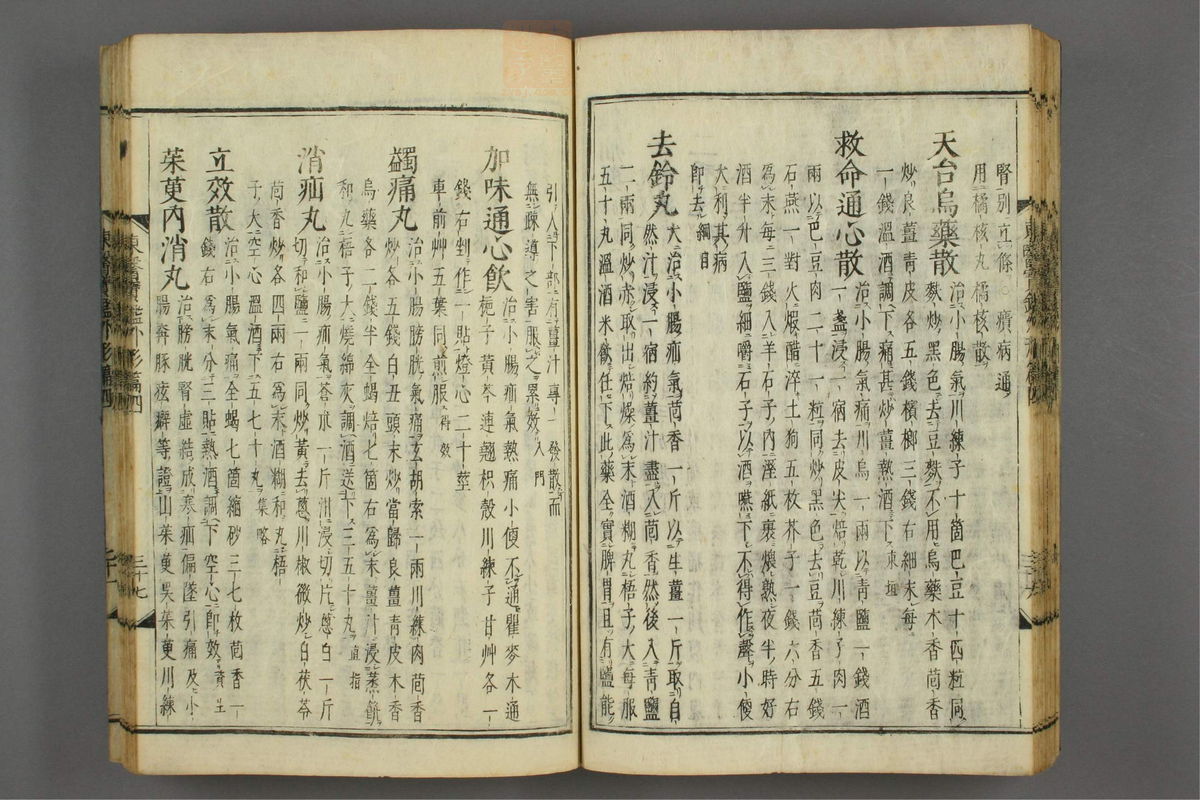 腎別立一條○㿗病通
用橘核丸橘核散
天台烏藥散治小腸疝氣川練子十箇巴豆十四粒同
麩炒黑色去豆麩不用烏藥木香茴香
炒良薑青皮各五錢檳榔三錢右細末每
一錢溫酒調下痛甚炒薑熱酒下東垣
救命通心散治小腸氣痛川烏一兩以青鹽一錢酒
一盞浸一宿去皮尖焙乾川練子肉一
兩以巴豆肉二十一粒同炒黑色去豆茴香五錢
石燕一對火煆醋淬土狗五枚芥子一錢六分右
爲末每三錢入羊石子內溼紙裹煨熟夜半時好
酒半升入鹽細嚼石子以酒嚥下不得作聲小便
大利其病
卽去綱目
去鈴丸大治小腸疝氣茴香一斤以生薑一斤取自
然汁浸一宿約薑汁盡入茴香然後入青鹽
二兩同炒赤取出焙燥爲末酒糊丸梧子大每服
五十丸溫酒米飮任下此藥全實脾胃且有鹽能
引入下部有薑汁專一發散而
無疎導之害服之累效入門
加味通心飮治小腸疝氣熱痛小便不通瞿麥木通
梔子黃芩連翹枳殼川練子甘艸各一
錢右剉作一貼燈心二十莖
車前艸五葉同煎服得效
蠲痛丸治小腸膀胱氣痛玄胡索一兩川練肉茴香
炒各五錢白丑頭末炒當歸良薑青皮木香
烏藥各二錢半全蝎焙七箇右爲末薑汁浸蒸餠
和丸梧子大燒綿灰調酒送下三五十丸直指
消疝丸治小腸疝氣蒼朮一斤泔浸切片葱白一斤
切和鹽一兩同炒黃去葱川椒微炒白茯苓
茴香炒各四兩右爲末酒糊和丸梧
子大空心溫酒下五七十丸集略
立效散治小腸氣痛全蝎七箇縮砂三七枚茴香一
錢右爲末分三貼熱酒調下空心卽效資生
茱萸內消丸治膀胱腎虛結成寒疝偏墜引痛及小
腸奔豚痃癖等證山茱萸吳茱萸川練
東醫寶鑑外形篇四
三十七